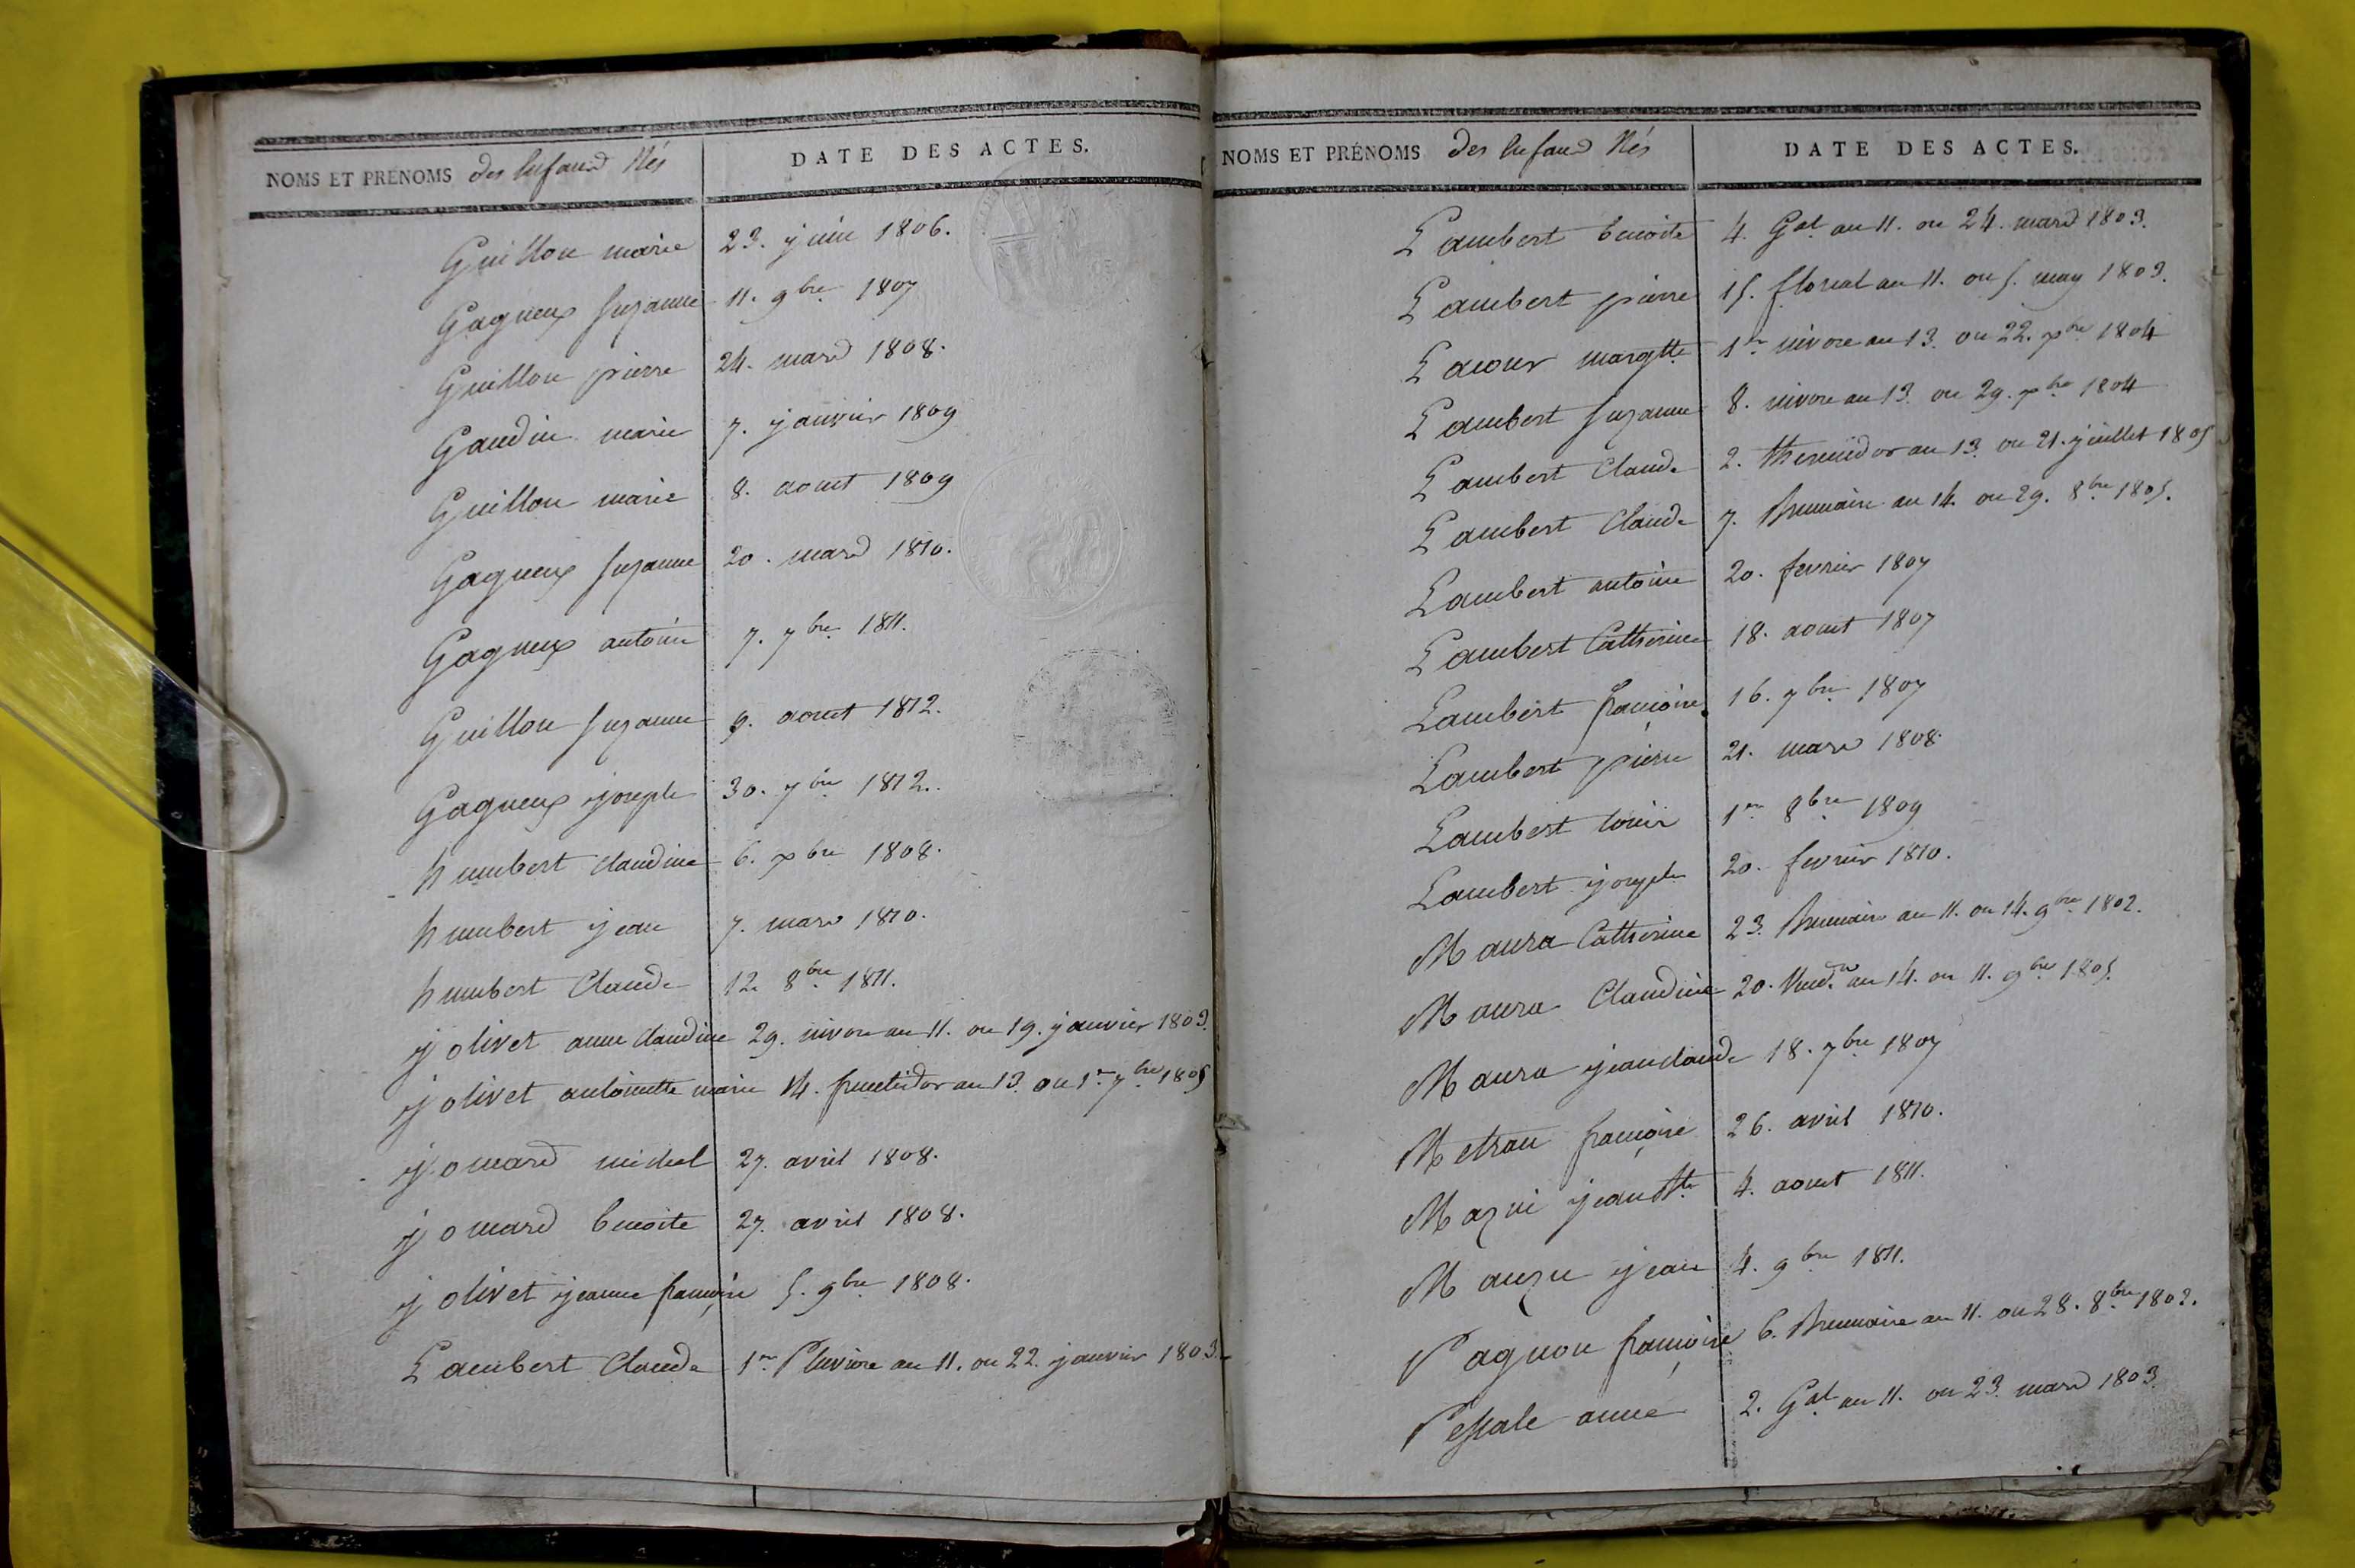 NOMS ET PRÉNOMS des Enfans Nés DATE DES ACTES.
Guillon marie 23. juin 1806.
Gagneux suzanne 11. 9bre 1807
Guillon pierre 24. mars 1808.
Gaudin marie 7. janvier 1809
Guillon marie 8. aoust 1809
Gagneux suzanne 20. mars 1810.
Gagneux antoine 7. 7bre 1811.
Guillon suzanne 9. aoust 1812.
Gagneux joseph 30. 7bre 1812.
humbert claudine 6. xbre 1808.
humbert jean 7. mars 1810.
humbert Claude 12. 8bre 1811.
jolivet anne claudine 29. nivose an 11. ou 19. janvier 1803.
jolivet antoinette marie 14. fructidor an 13. ou 1er 7bre 1805
jomard michel 27. avril 1808.
jomard benoite 27. avril 1808.
jolivet jeanne françoise 5. 9bre 1808.
Lambert Claude 1er Pluviose an 11. ou 22. janvier 1803.
NOMS ET PRÉNOMS des Enfans Nés DATE DES ACTES.
Lambert benoite 4. Gal an 11. ou 24. mars 1803.
Lambert pierre 15. floreal an 11. ou 5. may 1803.
Lacour margtte 1er nivose an 13. ou 22. xbre 1804
Lambert suzanne 8. nivose an 13. ou 29. xbre 1804
Lambert Claude 2. thermidor an 13. ou 21. juillet 1805
Lambert Claude 7. Brumaire an 14. ou 29. 8bre 1805.
Lambert antoine 20. fevrier 1807
Lambert Catherine 18. aoust 1807
Lambert françoise 16. 7bre 1807
Lambert pierre 21. mars 1808.
Lambert louis 1er 8bre 1809
Lambert joseph 20. fevrier 1810.
Maura Catherine 23. Brumaire an 11. ou 14. 9bre 1802.
Maura Claudine 20. an 14. ou 11. 9bre 1805.
Maura jeanclaude 18. 7bre 1807
Metrau françoise 26. avril 1810.
4. aoust 1811.
jean 4. 9bre 1811.
Pagnon françoise 6. Brumaire an 11. ou 28. 8bre 1802.
anne 2. Gal an 11. ou 23. mars 1803.